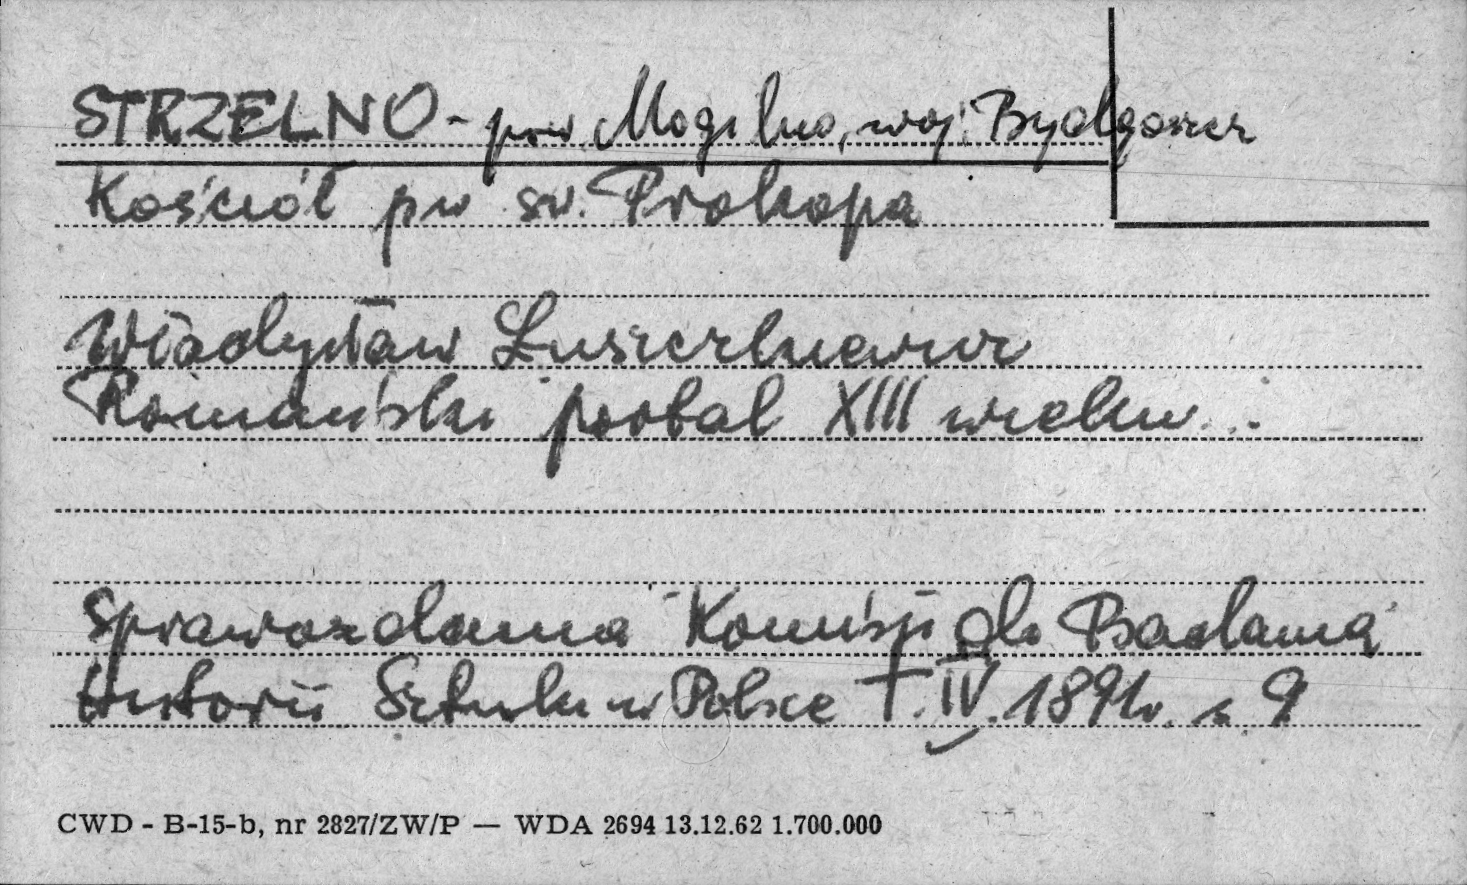 STRZELNO - pow. Mogilno, woj. Bydgoszcz
Kościół pw św. Prokopa
Władysław Łuszczkiewicz
Romański portal XIII wieku...
Sprawozdania Komisji do Badania
Historii Sztuki w Polsce T. IV. 1891r. s. 9
CWD - B-15-b, nr 2827/ZW/P — WDA 2694 13.12.62 1.700.000